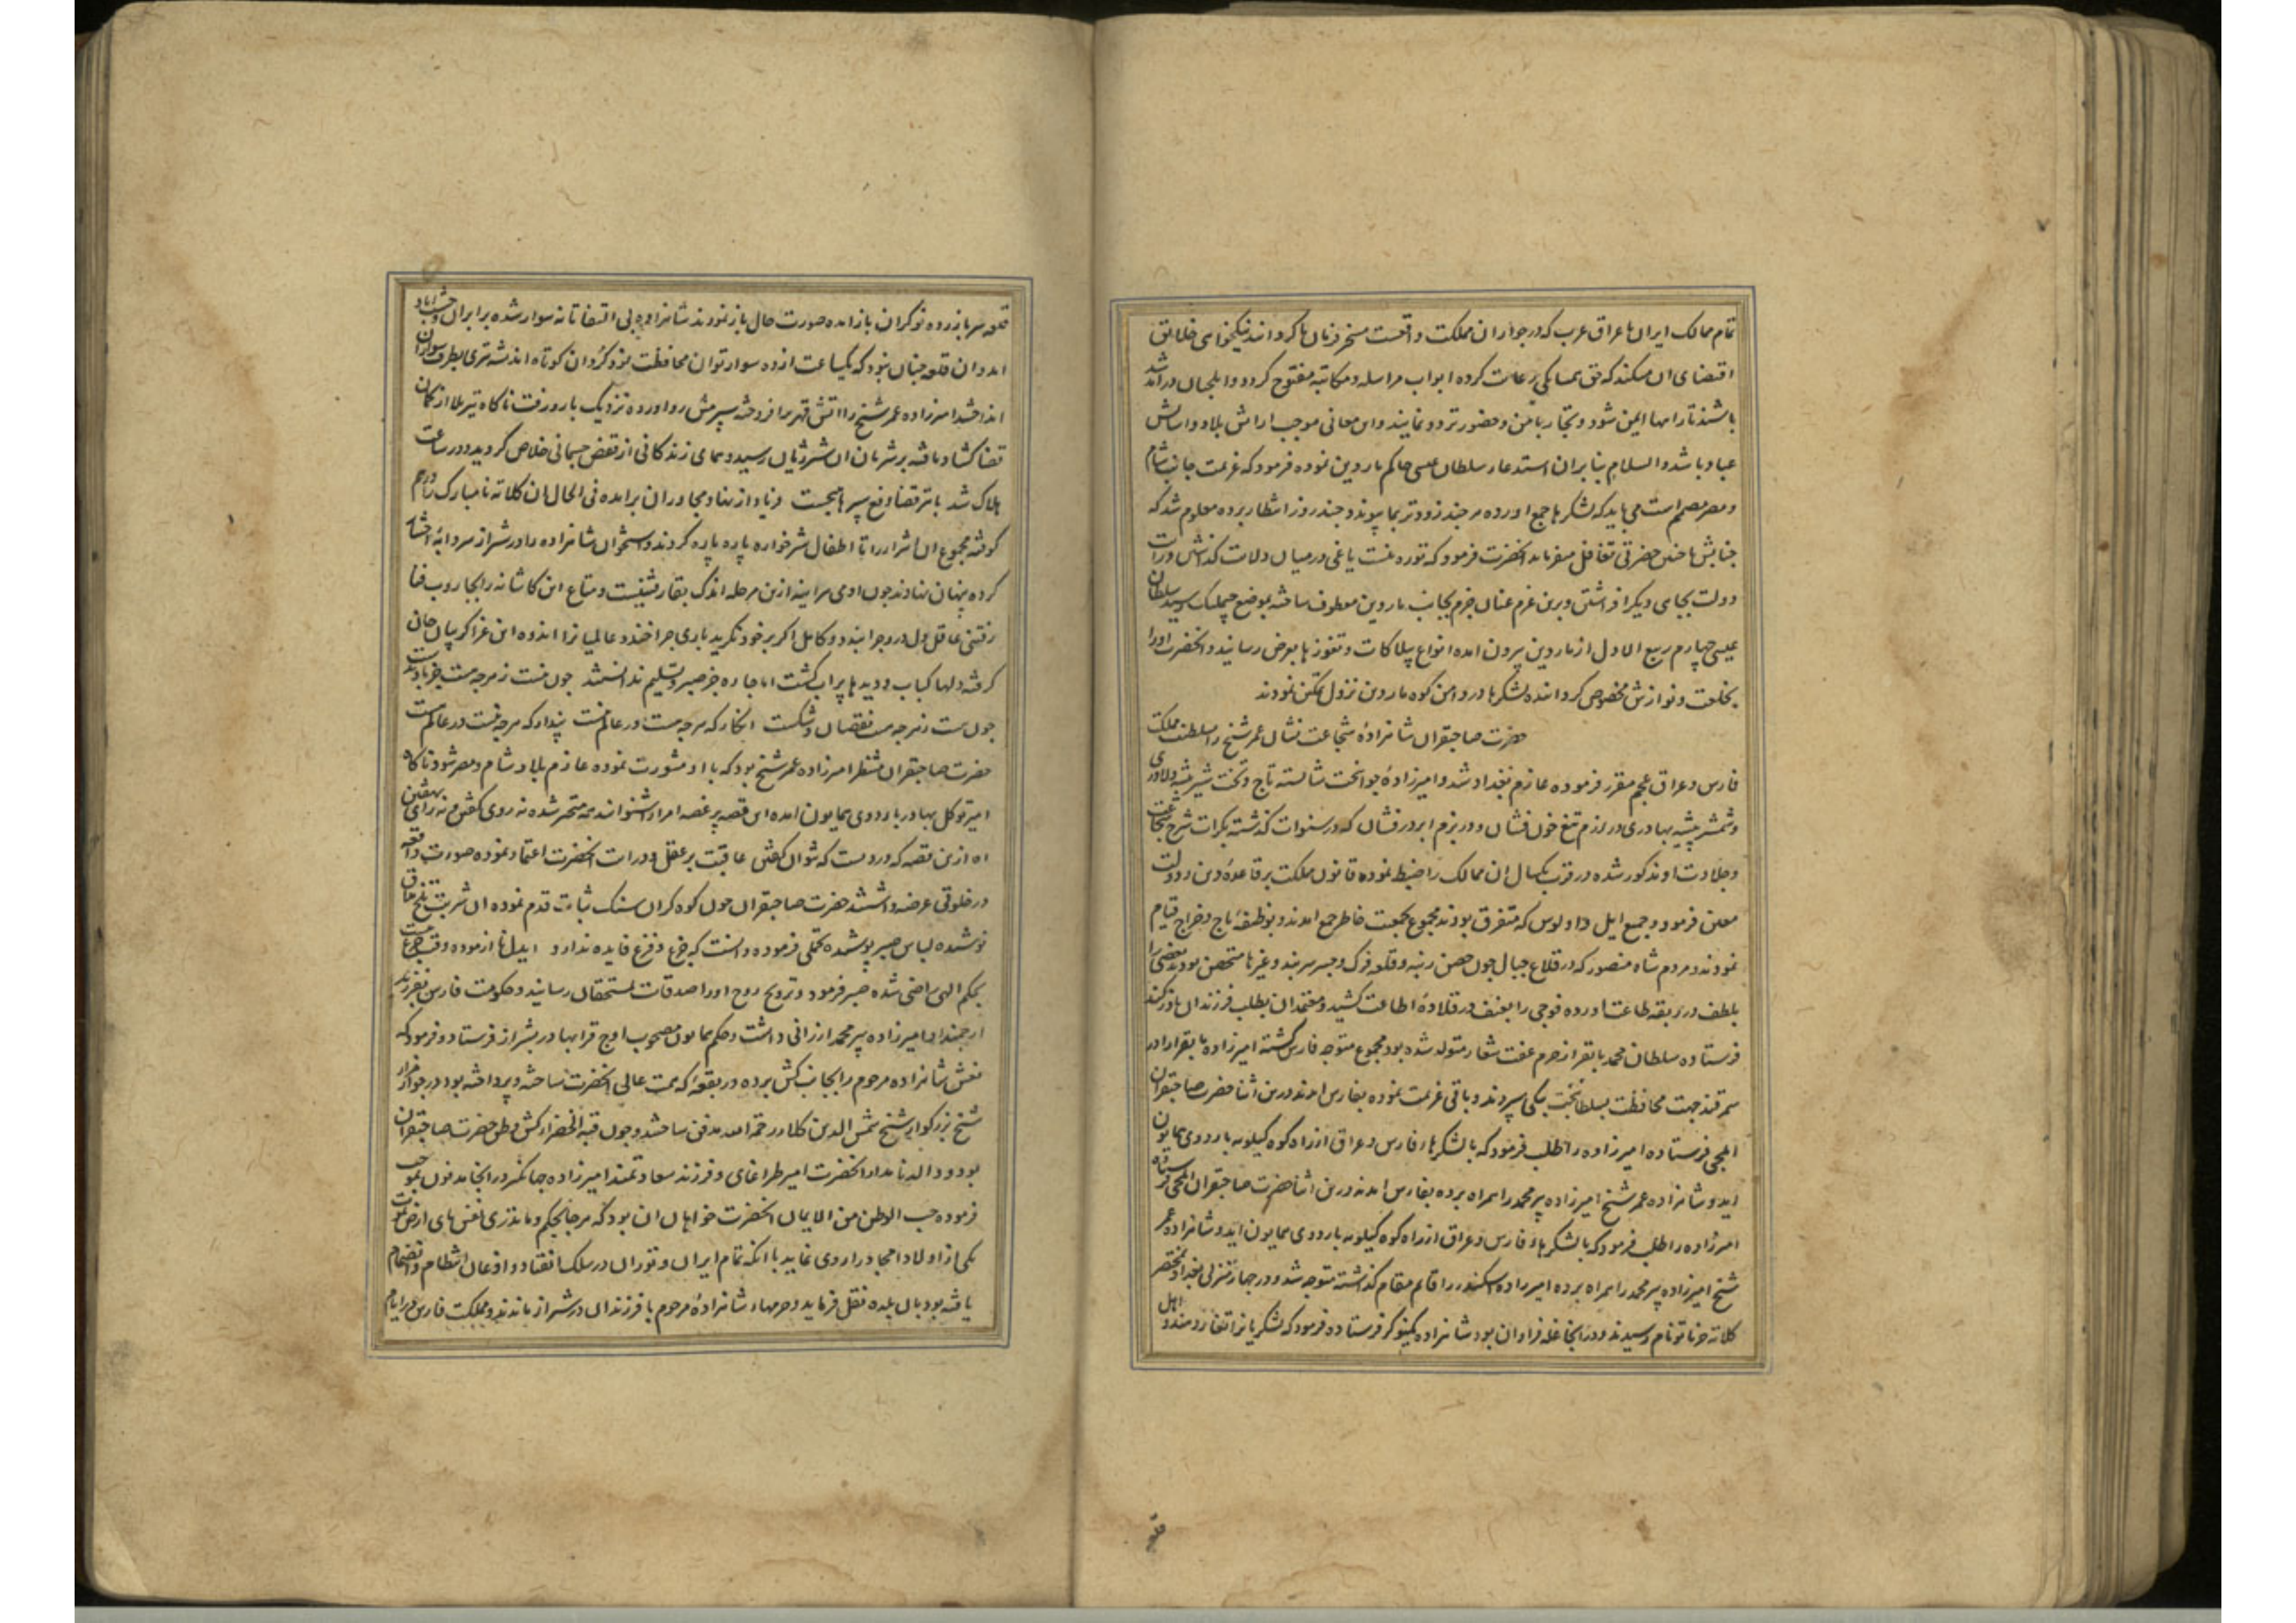 تمام ممالک ایران تا عراق عرب که در جوار ان مملکت واقعست مسخر فرمان ما کردانید نیکخواهی خلائق
اقتضای ان میکند که حق همسایکی رعایت کرده ابواب مراسله و مکاتبه مفتوح کردد و ایلچیان در امد شد
باشند تا راهها ایمن شود و تجار بامن و حضور تردد نمایند و این معانی موجب ارامش بلاد و اسایش
عباد باشد والسلام بنابران استدعاء سلطان عیسی حاکم ماردین نموده فرمود که عزیمت جانب شام
و مصر مصمم است می باید که لشکرها جمع اورده هر چند زودتر بما پیوندد چند روز انتظار برده معلوم شد که
حضرت فرمود که توره نیست یاغی در میان ولایت کذاشتن و رایت
دولت بجای دیکر افراشتن و برین عزم عنان حزم بجانب ماردین معطوف ساخته بموضع چملیک رسید سلطان
عیسی چهارم ربیع الاول از ماردین بیرون امده انواع بیلاکات و تغوزها بعرض رسانید و انحضرت اورا
بخلعت و نوازش مخصوص کردانیده لشکرها در دامن کوه ماردین نزول تمکن نمودند
حضرت صاحبقران شاهزادهٔ شجاعت نشان عمر شیخ را سلطنت مملکت
فارس و عراق عجم مقرر فرموده عازم بغداد شد و امیرزادهٔ جوانبخت شایسته تاج و تخت شیر بیشه دلاوری
و شمشیر پیشه بهادری در رزم تیغ خون فشان و در بزم ابر درفشان که در سنوات کذشته بکرات شرح شجاعت
و جلادت او مذکور شده در قرب یکسال ان ممالک را ضبط نموده قانون مملکت بر قاعدهٔ دین و دولت
معین فرمود و جمیع ایل و اولوس که متفرق بودند مجموع بجمعیت خاطر جمع امدند و بوظیفهٔ باج و خراج قیام
نمودند و مردم شاه منصور که در قلاع جبال چون حصن رنبه و قلعه فرک و جسر سربند و غیرها متحصن بودند بعضی را
بلطف در ربقه طاعت اورده فوجی را بعنف در قلادهٔ اطاعت کشید و معتمدان بطلب فرزندان باوزکند
فرستاده سلطان محمد بایقرا از حرم عفت شعار متولد شده بود مجموع متوجه فارس کشته امیرزاده بایقرا را در
سمرقند جهت محافظت بسلطان بخت بیکی سپردند و باقی عزیمت نموده بفارس امدند درین اثنا حضرت صاحبقران
ایلچی فرستاده امیرزاده را طلب فرمود که با لشکرهاء فارس و عراق از راه کوه کیلویه باردوی همایون
اید و شاهزاده عمر شیخ امیرزاده پیر محمد را همراه برده بفارس امدند درین اثنا حضرت صاحبقران ایلچی فرستاده
امیرزاده را طلب فرمود که با لشکرهاء فارس و عراق از راه کوه کیلویه باردوی همایون اید و شاهزاده عمر
شیخ امیرزاده پیر محمد را همراه برده امیرزاده اسکندر را قایم مقام کذاشته متوجه شد و در چهار منزلی بغداد بمختصر
کلاته خرماتو نام رسیدند و در انجا غله فراوان بود شاهزاده یکنوکر فرستاده فرمود که لشکریانرا تغار دهند و اهل
قلعه
قلعه سر باز زده نوکران باز امده صورت حال باز نمودند شاهزاده بی التفاتانه سوار شده برابر ان خراب اباد
امد و ان قلعه چنان نبود که یکساعت از ده سوار توان محافظت نمود کردان کوتاه اندیشه تیری بطرف سواران
انداختند امیرزاده عمر شیخ را اتش قهر برافروخته سپر پیش رو اورده نزدیک باره رفت ناکاه تیر بلا از کمان
قضا کشاد یافته بر شریان ان شیر ژیان رسید و همای زندکانی از قفص جسمانی خلاص کردید و در ساعت
هلاک شد با تیر قضا دفع سپر هیچست فریاد از نهاد مجاوران برامده فی الحال ان کلاته نامبارک را درهم
کوفته مجموع ان اشرار را تا اطفال شیرخواره پاره پاره کردند و استخوان شاهزاده را در شیراز سردابهٔ اختیار
کرده پنهان نهادند چون ادمی هراینه ازین مرحله اندک بقا رفتنیست و متاع این کاشانه را بجاروب فنا
رفتنی عاقل دل درو چرا بندد و کامل اکر بر خود نکرید باری چرا خندد عالمیانرا اندوه این عزا کریبان جان
کرفته دلها کباب و دیدها پر اب کشت اما چاره جز صبر و تسلیم ندانستند چون نیست ز هر چه هست جز باد بدست
چون هست ز هر چه هست نقصان و شکست انکار که هر چه هست در عالم نیست پندار که هر چه نیست در عالم هست
حضرت صاحبقران منتظر امیرزاده عمر شیخ بود که با او مشورت نموده عازم بلاد شام و مصر شود ناکاه
امیر توکل بهادر باردوی همایون امده این قصه پر غصه امرا را شنوانید همه متحیر شده نه روی کفتن و نه رای نهفتن
اه ازین قصه که دردیست که نتوان کفتن عاقبت بر عقل و درایت انحضرت اعتماد نموده صورت واقعه
در خلوتی عرضه داشتند حضرت صاحبقران چون کوه کران سنک ثبات قدم نموده ان شربت تلخ مذاق
نوشیده لباس صبر پوشیده تحملی فرموده دانست که جزع و فزع فایده ندارد
بحکم الهی راضی شده صبر فرمود و ترویح روح اورا صدقات بمستحقان رسانید و حکومت فارس بفرزند
ارجمند او امیرزاده پیر محمد ارزانی داشت و حکم همایون مصحوب اوج قرا بهادر بشیراز فرستاد و فرمود که
نعش شاهزاده مرحوم را بجانب کش برده در بقعهٔ که همت عالی انحضرت ساخته و پرداخته بود در جوار مزار
شیخ بزرکوار شیخ شمس الدین کلار رحمة الله مدفن ساختند و چون قبة الخضراء کش وطن حضرت صاحبقران
بود و والد نامدار انحضرت امیر طراغای و فرزند سعادتمند امیرزاده جهانکیر در انجا مدفون بموجب
فرموده حب الوطن من الایمان انحضرت خواهان ان بود که هر جا بحکم و ما تدری نفس بای ارض تموت
یکی از اولاد امجاد را روی نماید با انکه تمام ایران و توران در سلک انقیاد و اذعان انتظام و انضمام
یافته بود بان بلده نقل فرماید و حرمهاء شاهزادهٔ مرحوم با فرزندان در شیراز بماندند و مملکت فارس در ایام